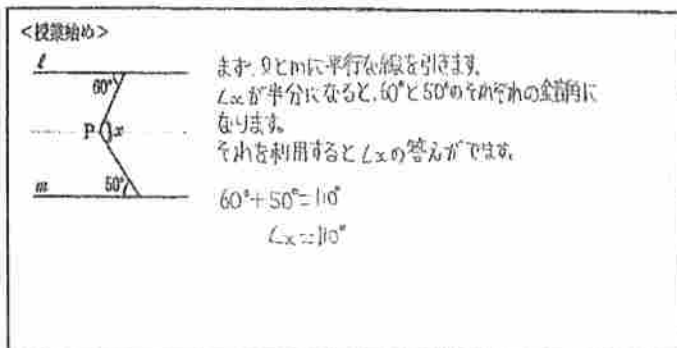 <授業始め>
ℓ
60°
P
x
m
50°
まず、ℓとmに平行な線を引きます。
∠xが半分になると、60°と50°のそれぞれの錯角に
なります。
それを利用すると∠xの答えがでます。
60°+50°=110°
∠x=110°